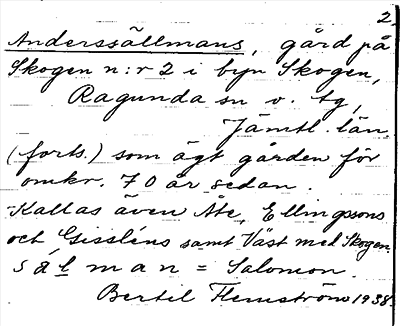 2.
Anderssällmans, gård på
Skogen n:r 2 i byn Skogen,
Ragunda sn o. tg,
Jämtl. län.
(forts.) som ägt gården för
omkr. 70 år sedan.
Kallas även Åte, Ellingssons
och Gissléns samt Väst med Skogen.
sälman = Salomon.
Bertel Flemström 1938.